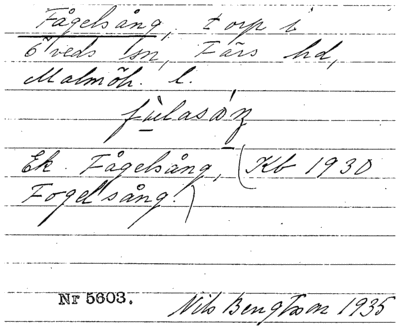 Fågelsång, torp i
Öveds sn, Färs hd,
Malmöh. l.
fùlasáŋ
Ek. Fågelsång, (Kb 1930
Fogelsång.)
Nr 5603. Nils Bengtsson 1935